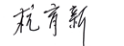 杭育新